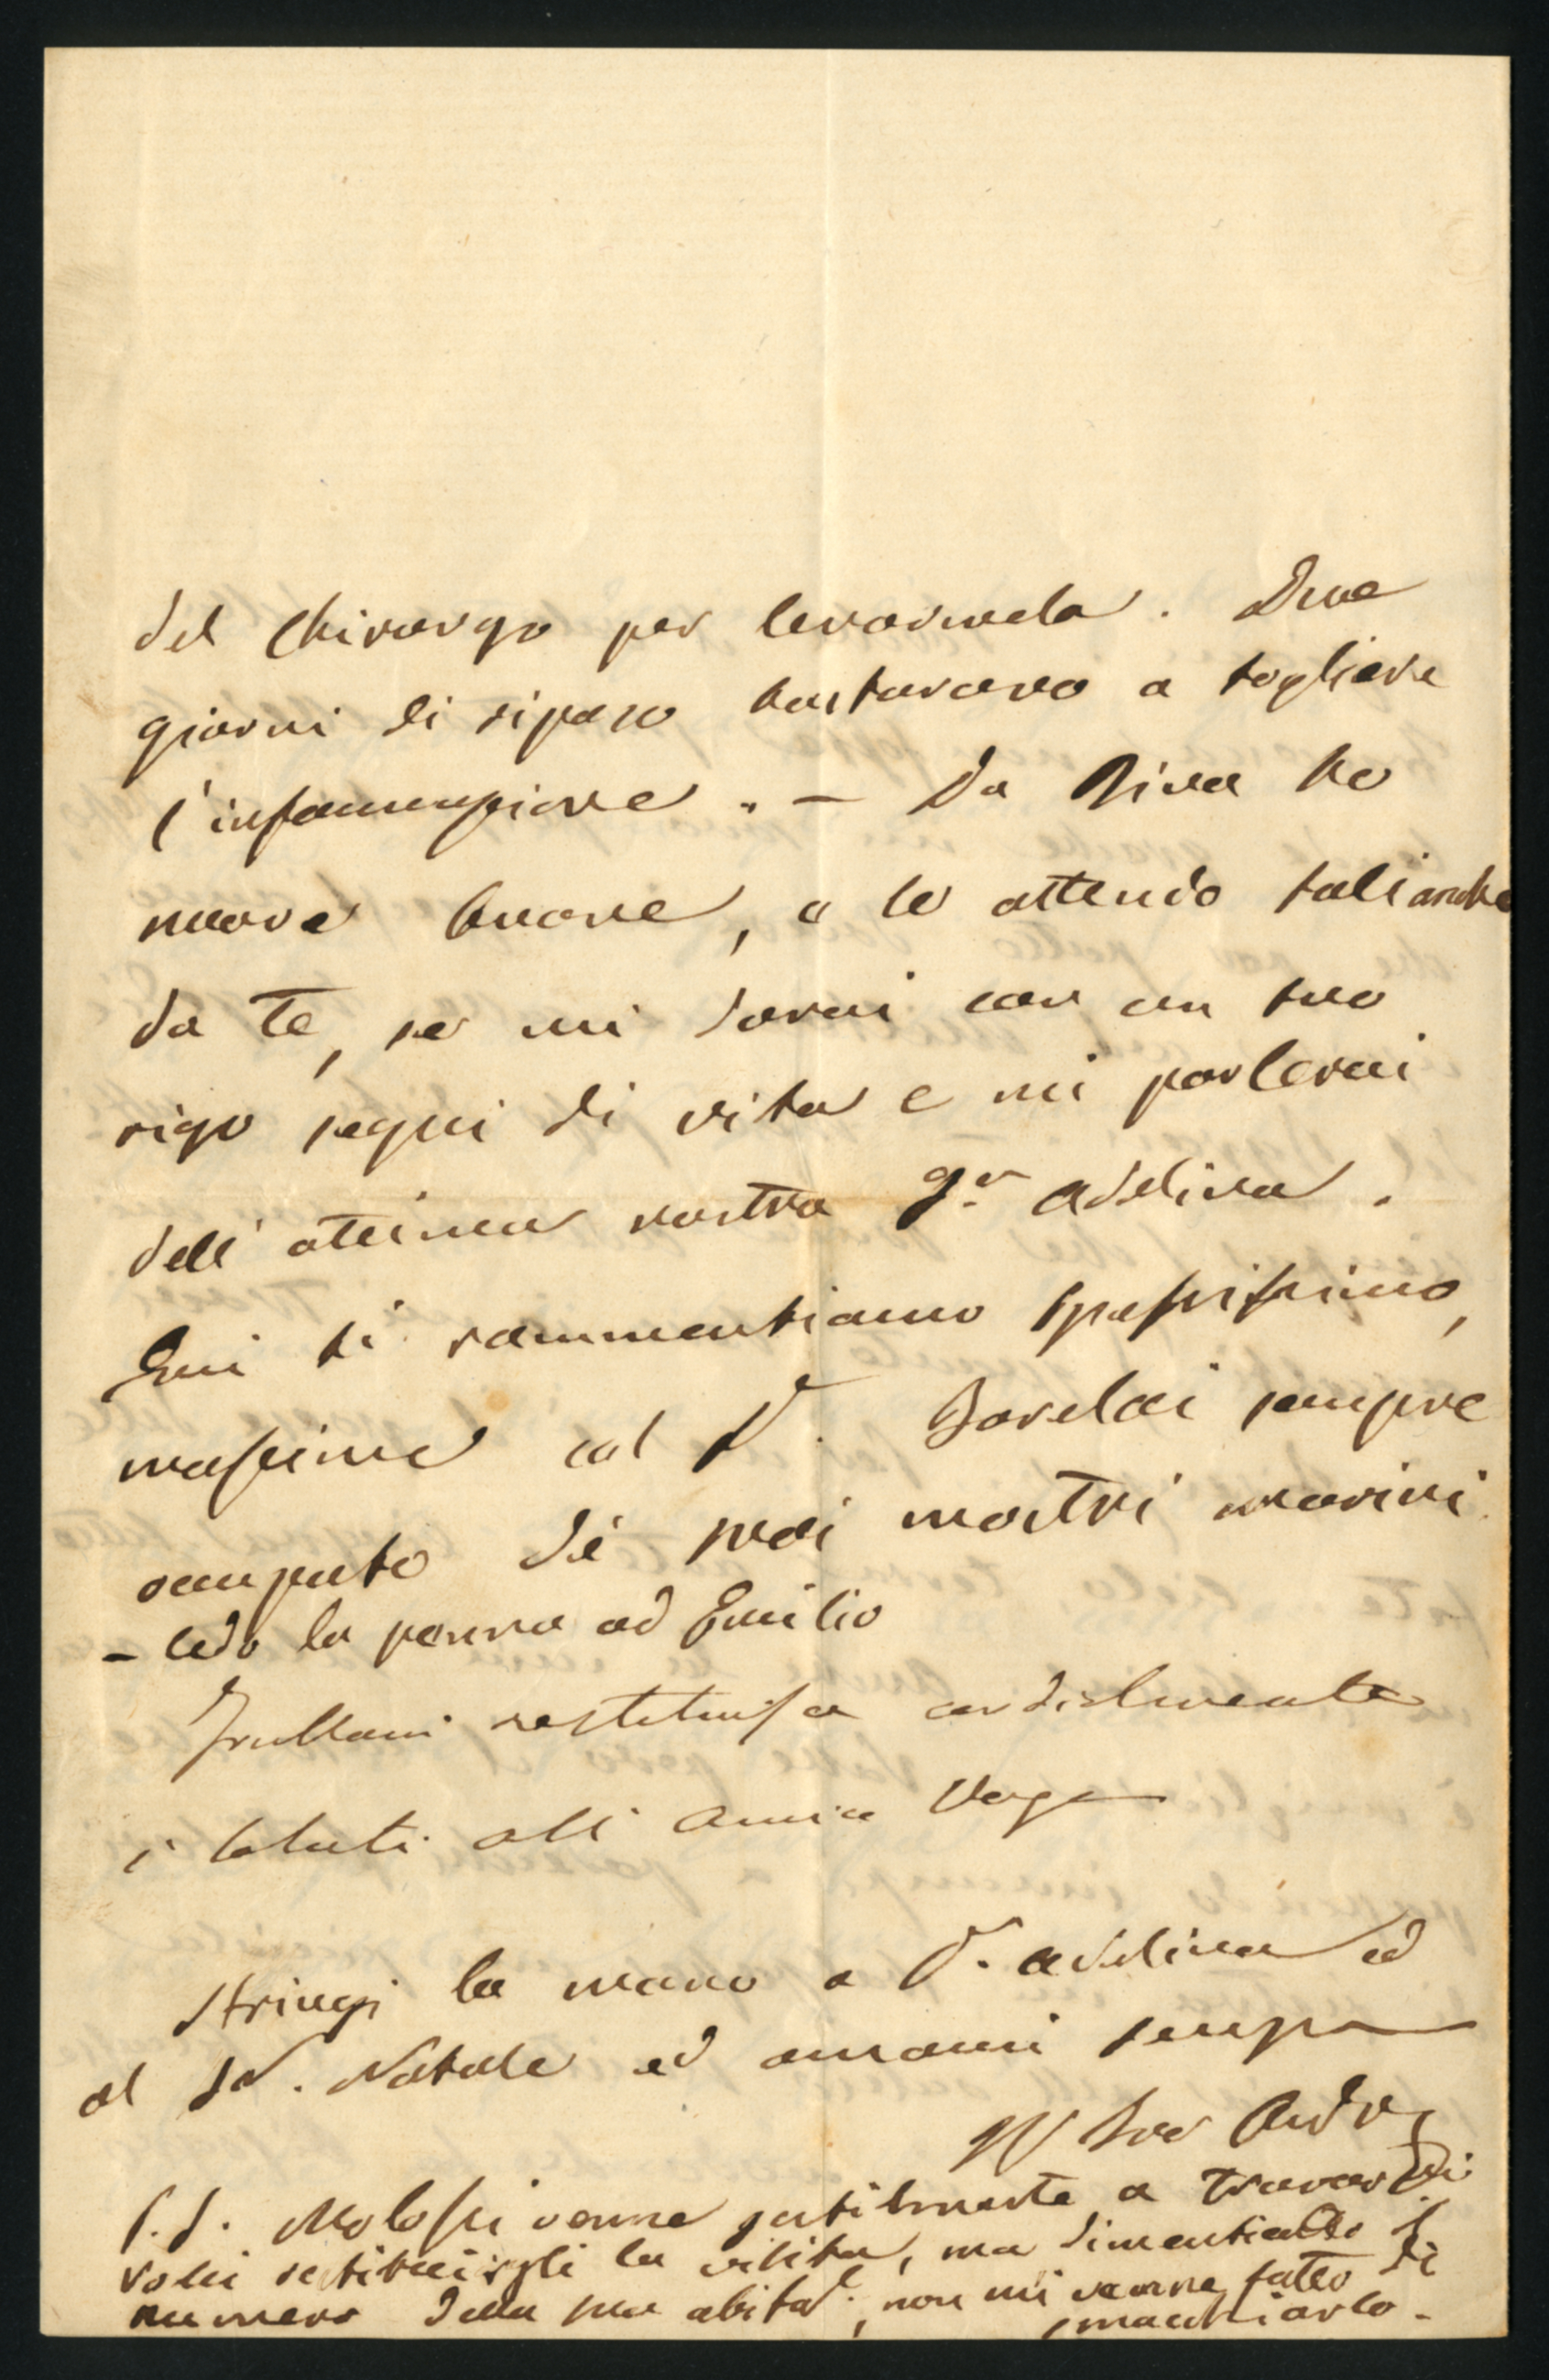 del Chirurgo per levarmela. Due
giorni di riposo bastarono a togliere
l'infiammazione. — Da Riva ho
nuove buone, e le attendo tali anche
da Te, se mi darai con un tuo
rigo segni di vita e mi parlerai
dell'ottima nostra Adelina.
Qui ti rammentiamo spessissimo,
massime col D. Barelai sempre
occupato di suoi mostri marini.
- Cedo la penna ad Emilio
Frullani restituisce cordialmente
i saluti all' Amica
Stringi la mano a Adelina ed
al Natale ed amami sempre
Il tuo Andr
P.S. Molossi venne gentilmente a trovarmi
volli restituirgli la visita, ma dimenticato il
numero della sua abitaz., non mi venne fatto di
smacchiarlo.